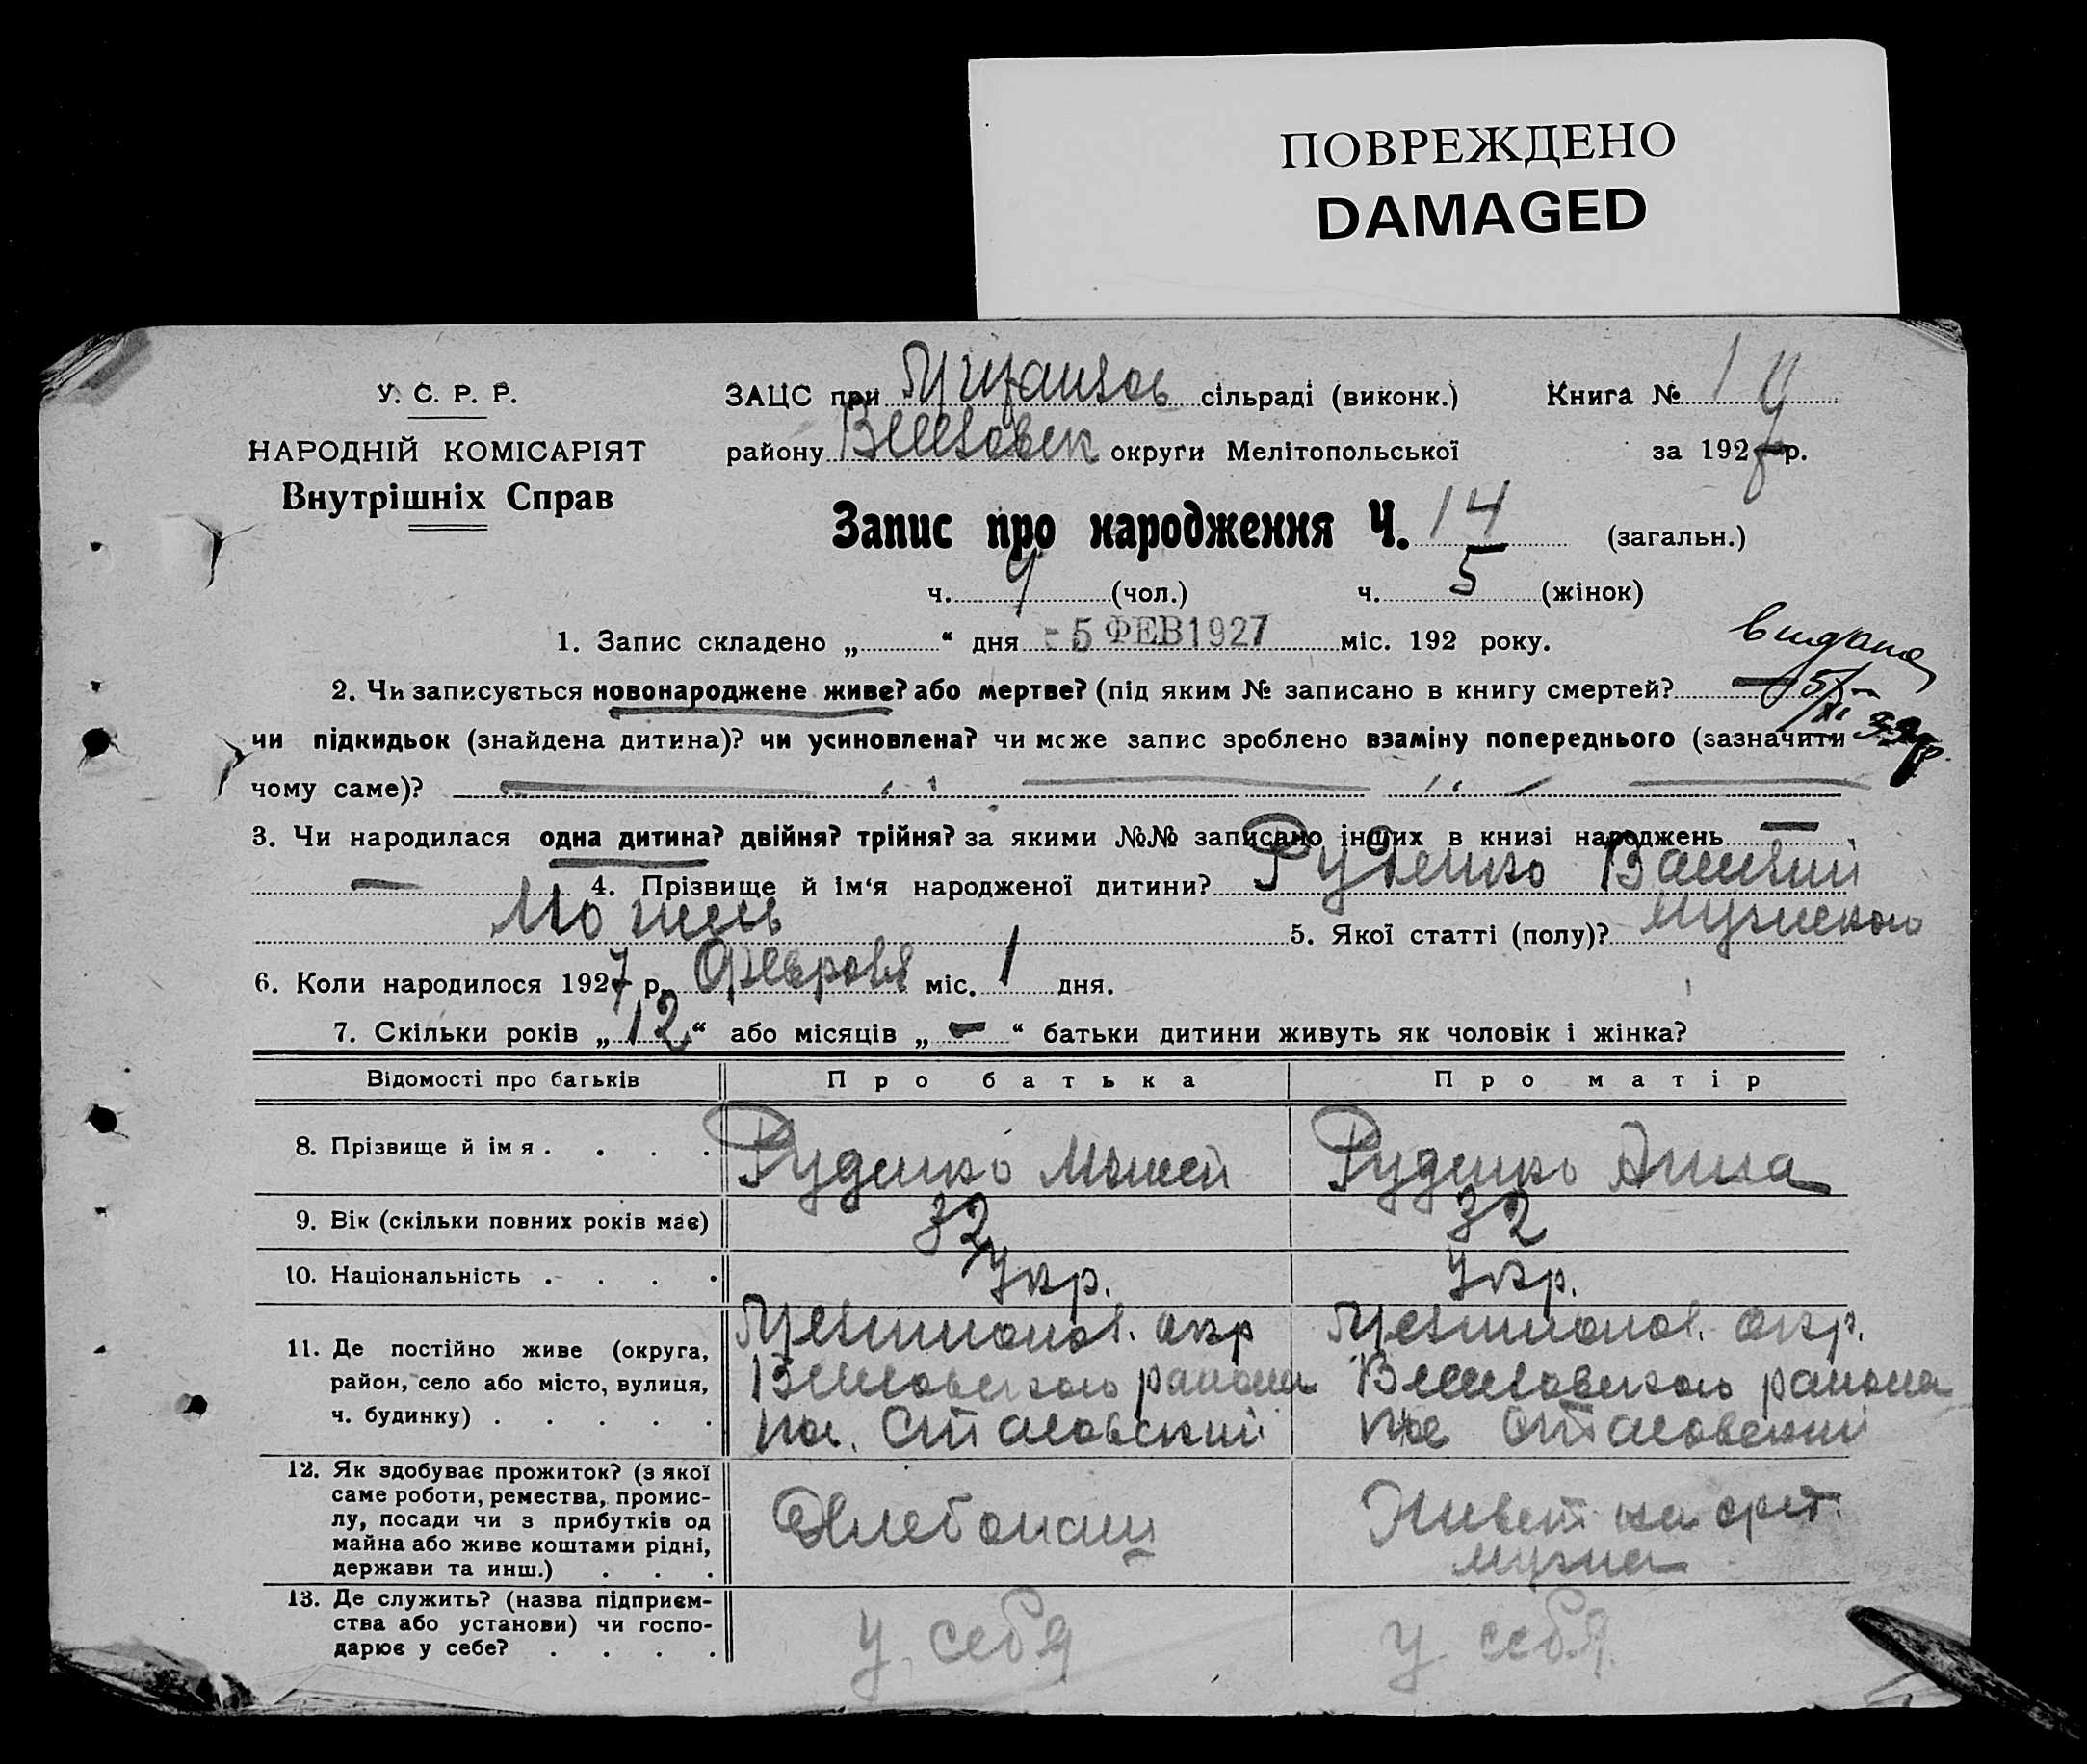 ПОВРЕЖДЕНО
DAMAGED
У. С. Р. Р.
НАРОДНІЙ КОМІСАРІЯТ
Внутрішніх Справ
ЗАЦС при сільраді (виконк.) Книга № 1
району округи Мелітопольської за 1927 р.
Запис про народження Ч. 14 (загальн.)
ч. 9 (чол.) ч. 5 (жінок)
1. Запис складено „ “ дня - 5 ФЕВ 1927 міс. 192 року.
видано
2. Чи записується новонароджене живе? або мертве? (під яким № записано в книгу смертей? —
чи підкидьок (знайдена дитина)? чи усиновлена? чи може запис зроблено взаміну попереднього (зазначити
чому саме)?
3. Чи народилася одна дитина? двійня? трійня? за якими №№ записано інших в книзі народжень —
— 4. Прізвище й ім‘я народженої дитини? Руденко
5. Якої статті (полу)? Мужского
6. Коли народилося 1927 р. Февраля міс. 1 дня.
7. Скільки років „ 12 “ або місяців „ - “ батьки дитини живуть як чоловік і жінка?
Відомості про батьків Про батька Про матір
8. Прізвище й імя . . . . Руденко Моисей Руденко Анна
9. Вік (скільки повних років має) 32 32
10. Національність . . . . Укр. Укр.
11. Де постійно живе (округа, окр окр.
район, село або місто, вулиця, района района
ч. будинку) . . . . .
12. Як здобуває прожиток? (з якої
саме роботи, ремества, промис-
лу, посади чи з прибутків од Хлебопаш Живет на сред.
майна або живе коштами рідні,
держави та инш.) . . . мужа
13. Де служить? (назва підприєм-
ства або установи) чи госпо- у себя у себя
дарює у себе? . . . .